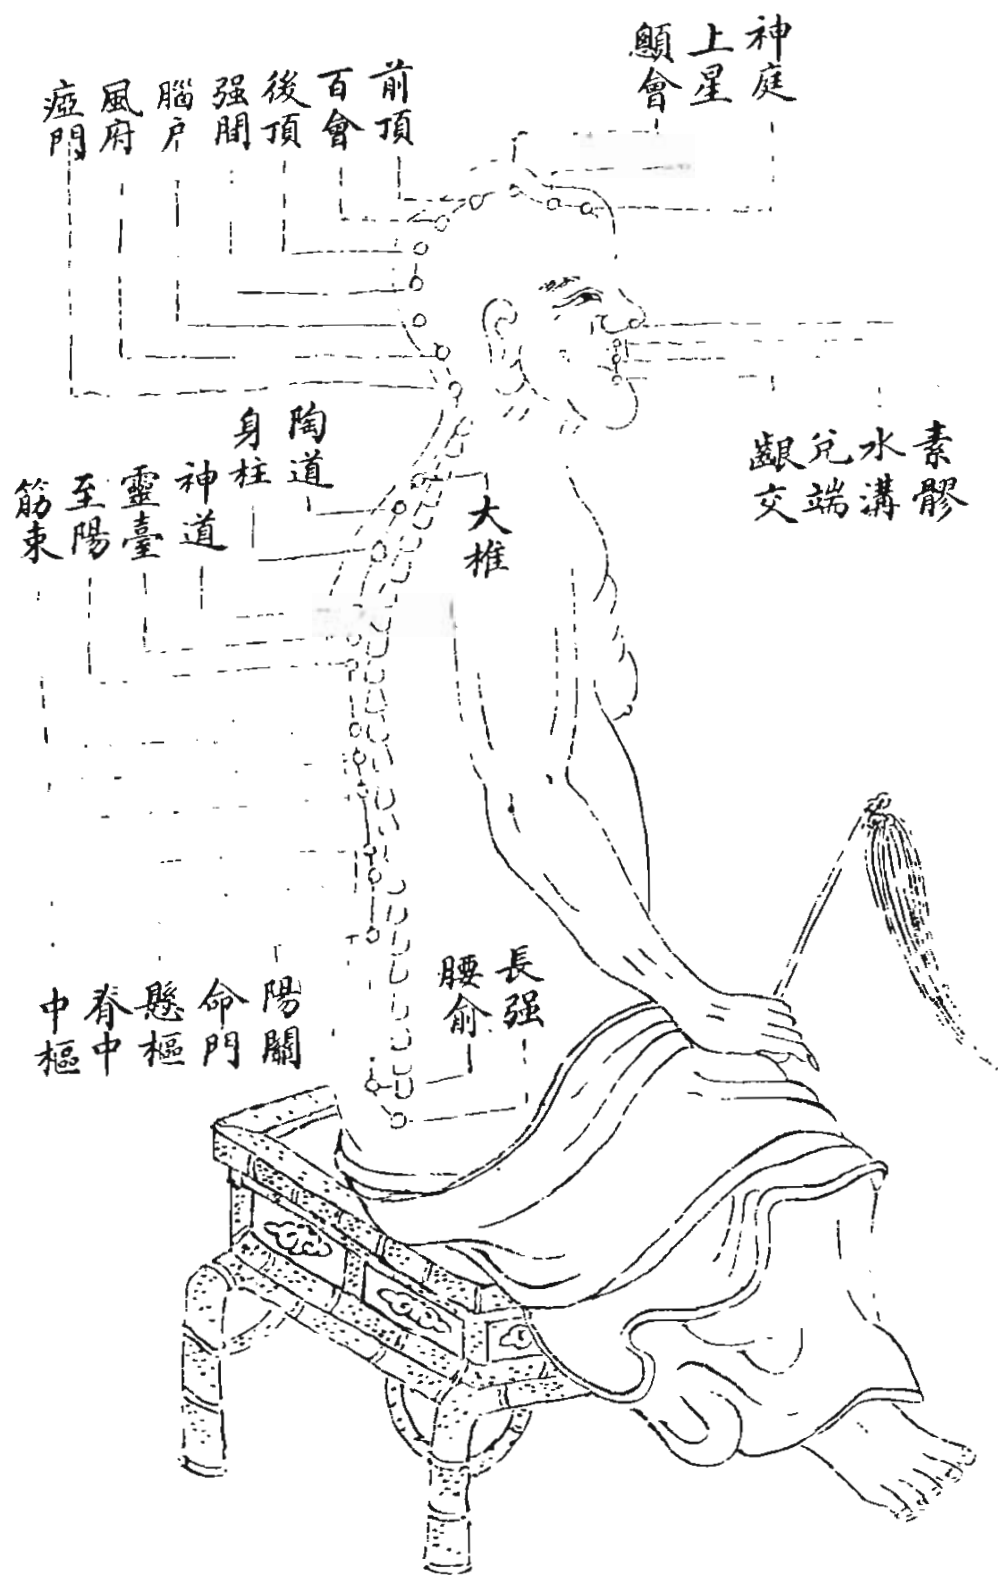 神庭
上星
顖會
前頂
百會
後頂
强間
腦户
風府
瘂門
素髎
水溝
兌端
齦交
陶道
身柱
神道
靈臺
至陽
筋束
大椎
長强
腰俞
陽關
命門
懸樞
脊中
中樞